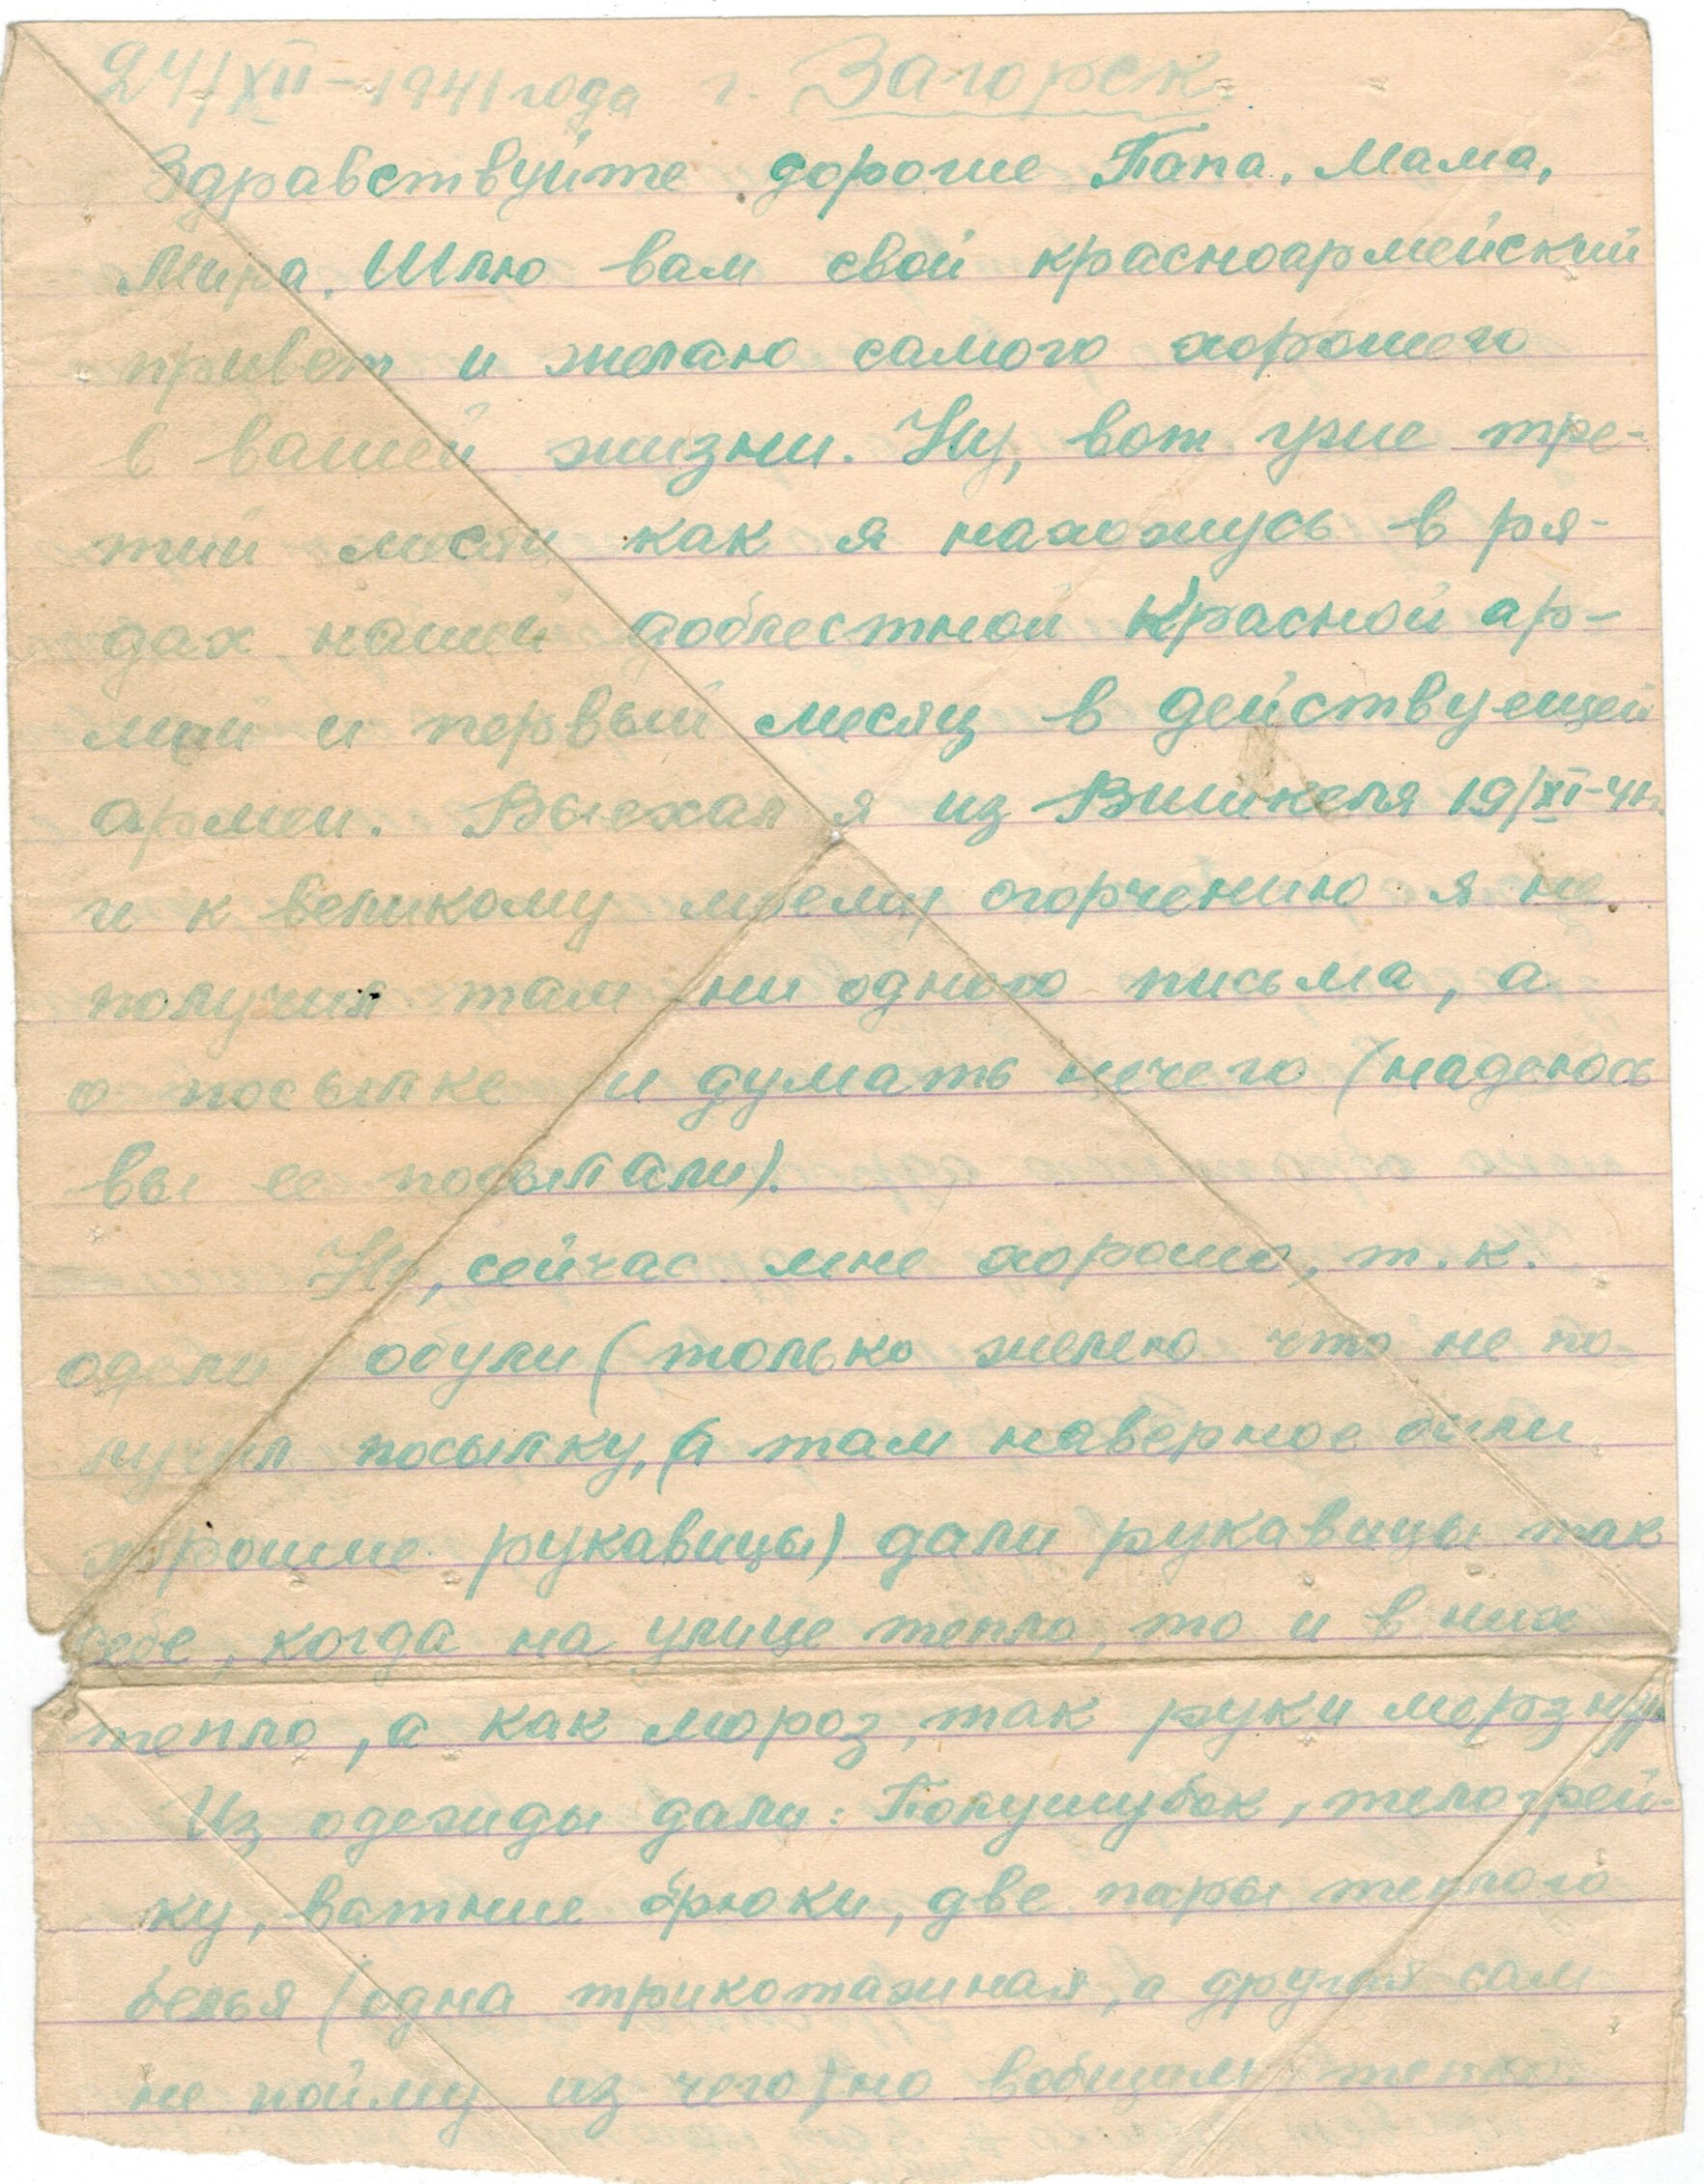 24/XII-1941 года г. Загорск.
Здравствуйте дорогие Папа, Мама,
Мира. Шлю вам свой красноармейский
привет и желаю самого хорошего
в вашей жизни. Ну, вот уже тре-
тий месяц как я нахожусь в ря-
дах нашей доблестной Красной ар-
мии и первый месяц в действующей
армеи. Выехал я из 19/XI-41г.
и к великому моему огорчению я не
получил там ни одного письма, а
о посылке и думать нечего (надеюсь
вы ее посылали).
Ну, сейчас мне хорошо, т.к.
одели обули (только желею что не по-
лучил посылку, а там наверное были
хорошие рукавицы) дали рукавицы так
себе, когда на улице тепло, то и в них
тепло, а как мороз, так руки мерзнут
Из одежды дали: Полушубок, телогрей-
ку, ватные брюки, две пары теплого
белья (одна трикотажная, а другая сам
не пойму из чего) но вобщем тепло.